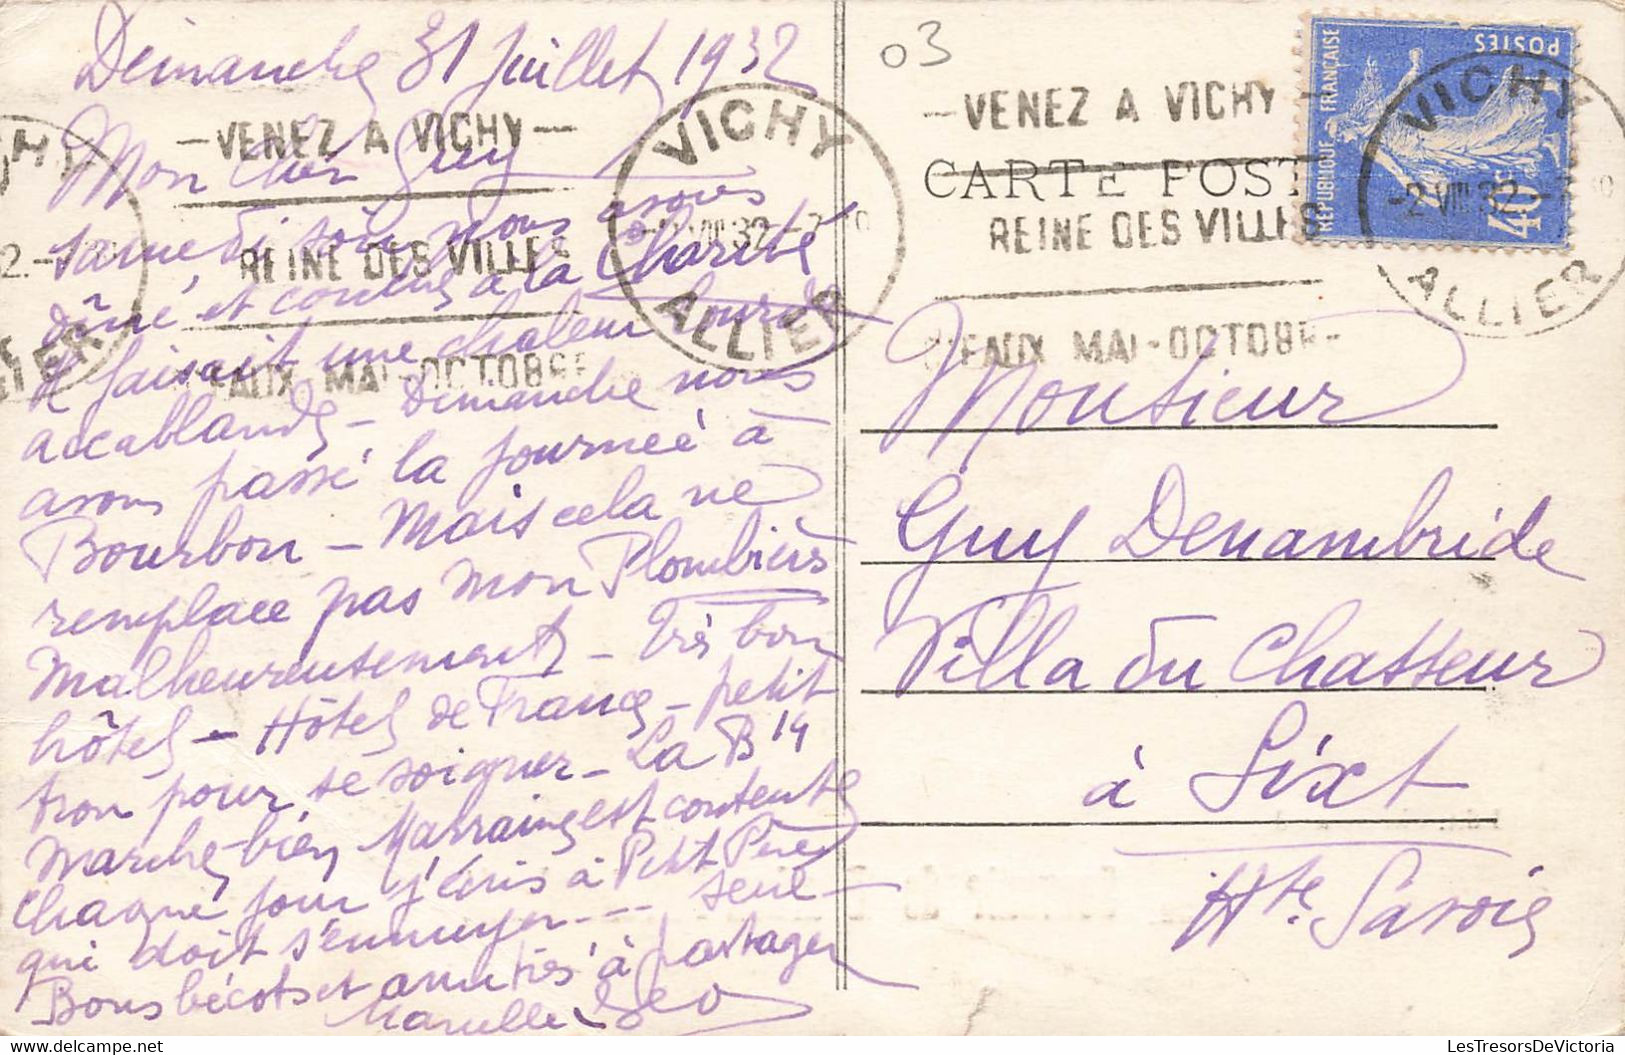 Dimanche 31 Juillet 1932
Mon cher Guy
Samedi soir nous avons
dîné et couché à la Charité
Il faisait une chaleur lourde
accablante - Dimanche nous
avons passé la journée à
Bourbon - Mais cela ne
remplace pas mon Plombières
Malheureusement - Très bon
hôtel - Hôtel de France - petit
trou pour se soigner - La B 14
marche bien Marraine est contente
Chaque jour j'écris à Petit Père
qui doit s'ennuyer --- seul -
Bons bécots et amitiés à partager
Marcelle Geo
03
-VENEZ A VICHY-
REINE DES VILLES
D'EAUX MAI-OCTOBRE
VICHY
-2 VIII 32 -7
ALLIER
-VENEZ A VICHY-
REINE DES VILLES
D'EAUX MAI-OCTOBRE-
VICHY
-2 VIII 32 -7
ALLIER
CARTE POST
POSTES
RÉPUBLIQUE FRANÇAISE
40c
Monsieur
Guy Denambride
Villa du Chasseur
à Sixt
Hte Savoie
LesTresorsDeVictoria - delcampe.net